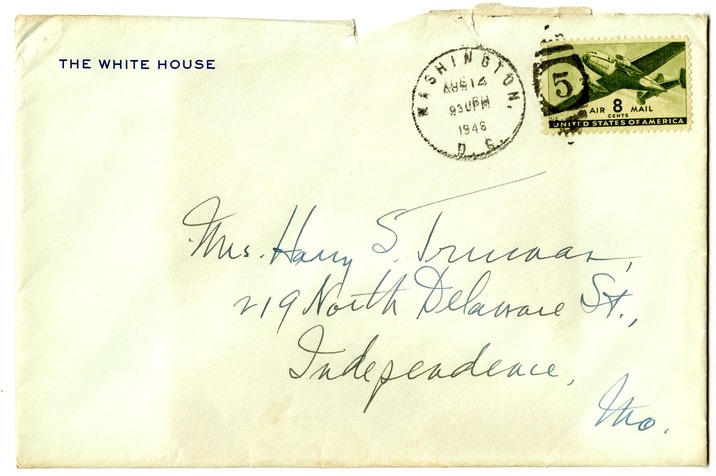 THE WHITE HOUSE
WASHINGTON,
AUG 14
930PM
1946
D. C.
5
AIR 8 MAIL
CENTS
UNITED STATES OF AMERICA
Mrs. Harry S. Truman,
219 North Delaware St.,
Independence,
Mo.